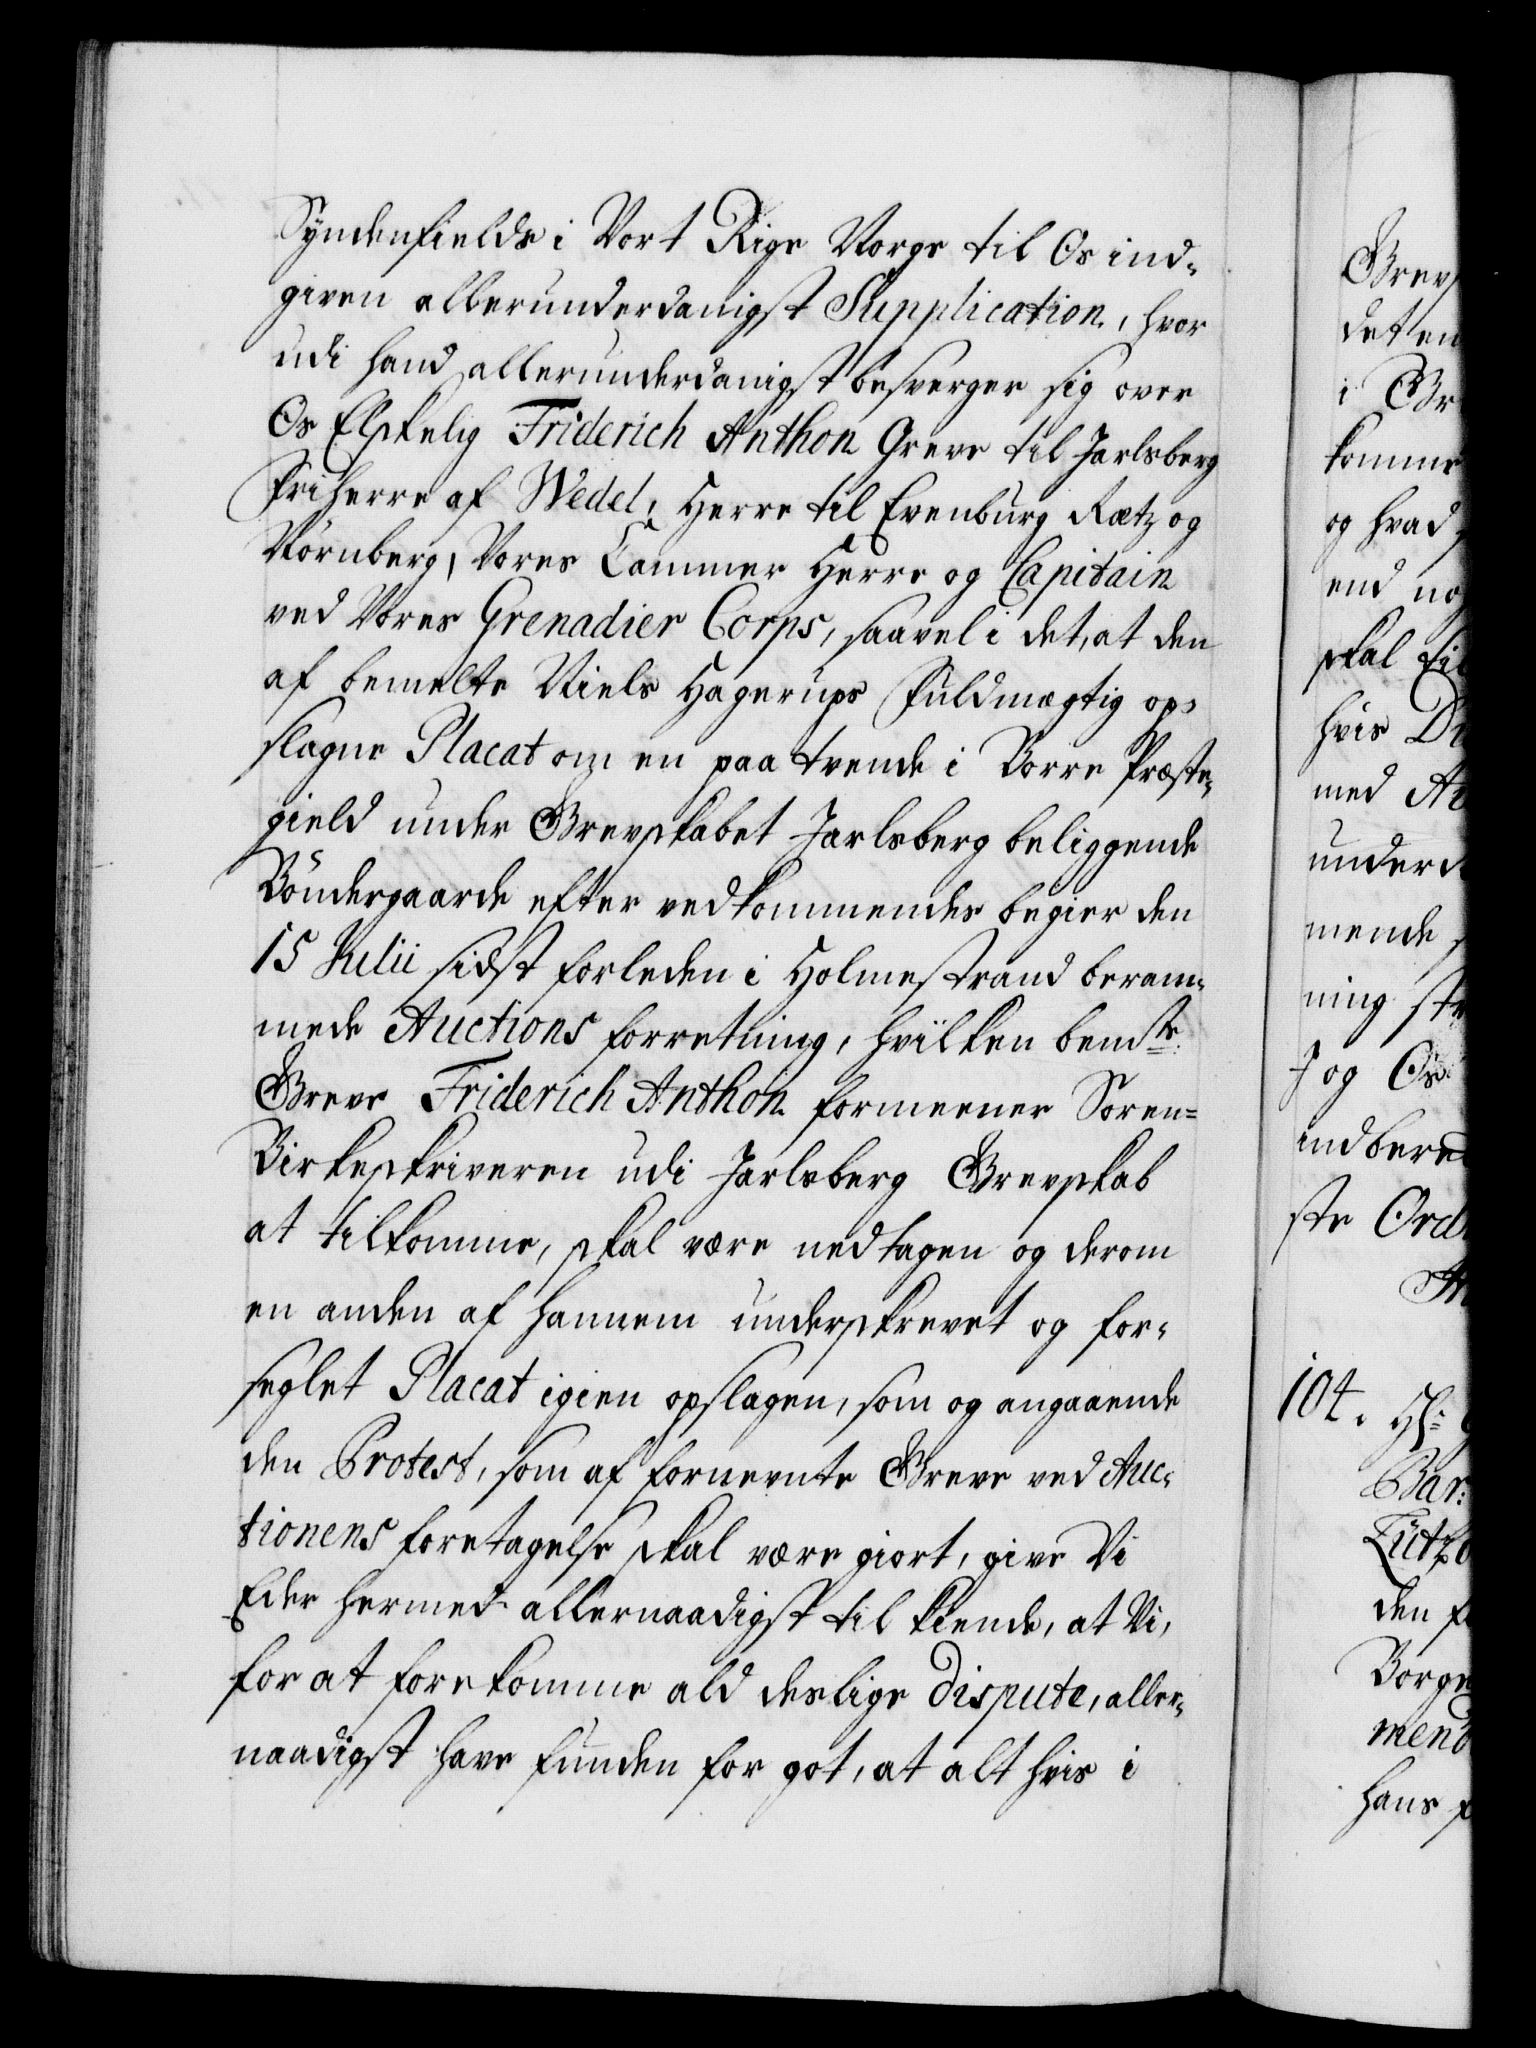 Syndenfields i Vort Rige Norge til Os ind-
given allerunderdanigst Supplication, hvor
udi hand allerunderdanigst besverger sig over
Os Elskelig Friderich Anthon Greve til Jarlsberg
Friherre af Wedel, Herre til Evenburg Rætz og
Nörnberg, Vores Cammer Herre og Capitain
ved Vores Grenadier Corps, saavel i det, at den
af bemelte Niels Hagerups Fuldmægtig op-
slagne Placat om en paa trende i Borre Præste-
gield under Grevskabet Jarlsberg beliggende
Böndergaarde efter vedkommendes begier den
15 Julii sidst forleden i Holmestrand beram-
mede Auctions forretning, hvilken bemte
Greve Friderich Anthon formeener Soren-
Birkeskriveren udi Jarlsberg Grevskab
at tilkomme, skal være nedtagen og derom
en anden af hannem underskrevet og for-
seglet Placat igien opslagen, som og angaaende
den Protest, som af fornevnte Greve ved Auc-
tionens foretagelse skal være giort, give Vi
Eder hermed allernaadigst til kiende, at Vi,
for at forekomme ald deslige Dispute, aller-
naadigst have funden for got, at alt hvis i
Grevs
det en
i Gr
komme
og hvad
end
skal
hvis
med
underd
mende
ning
J og Os
indbere
ste Ord
104.
Bar:
Lützo
den
Borge
mend
hans